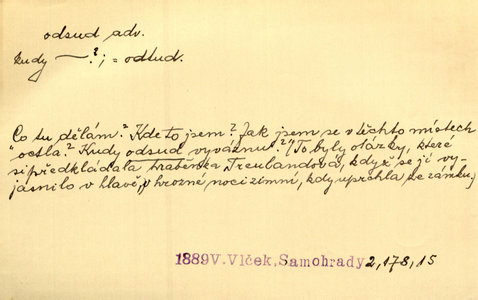 odsud adv.
kudy — ?; = odtud.
Co tu dělám? Kde to jsem? Jak jsem se v těchto místech
octla? Kudy odsud vyváznu?" (To byly otázky, které
si předkládala hraběnka Treulandová, když se jí vy-
jasnilo v hlavě, v hrozné noci zimní, kdy uprchla ze zámku.)
1889 V. Vlček, Samohrady 2, 178, 15